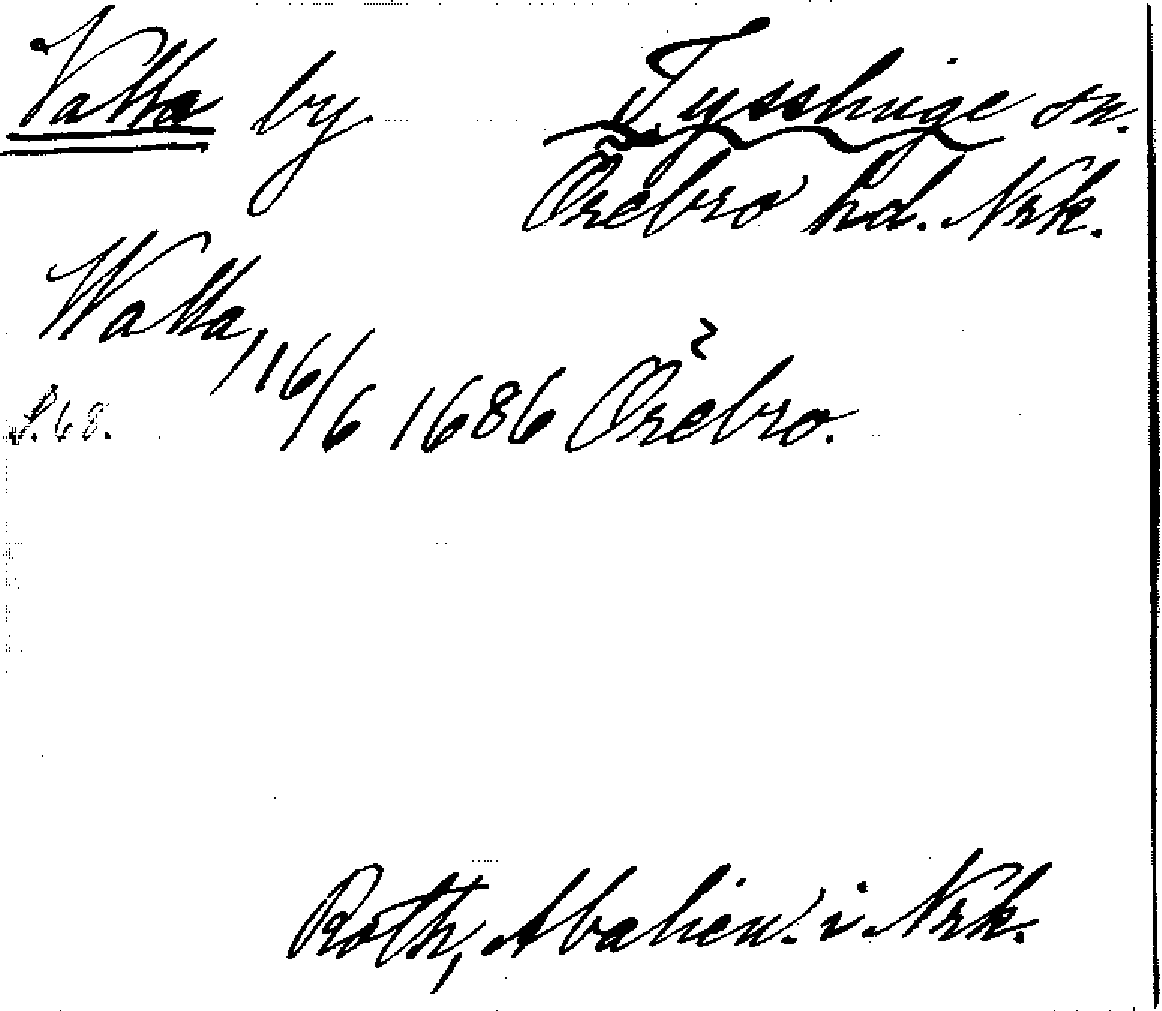 Vatta by Tysslinge sn.
Örebro hd. Nrk.
Watta, 16/6 1686 Örebro.
S. 68.
Roth, Abalien. i Nrk.